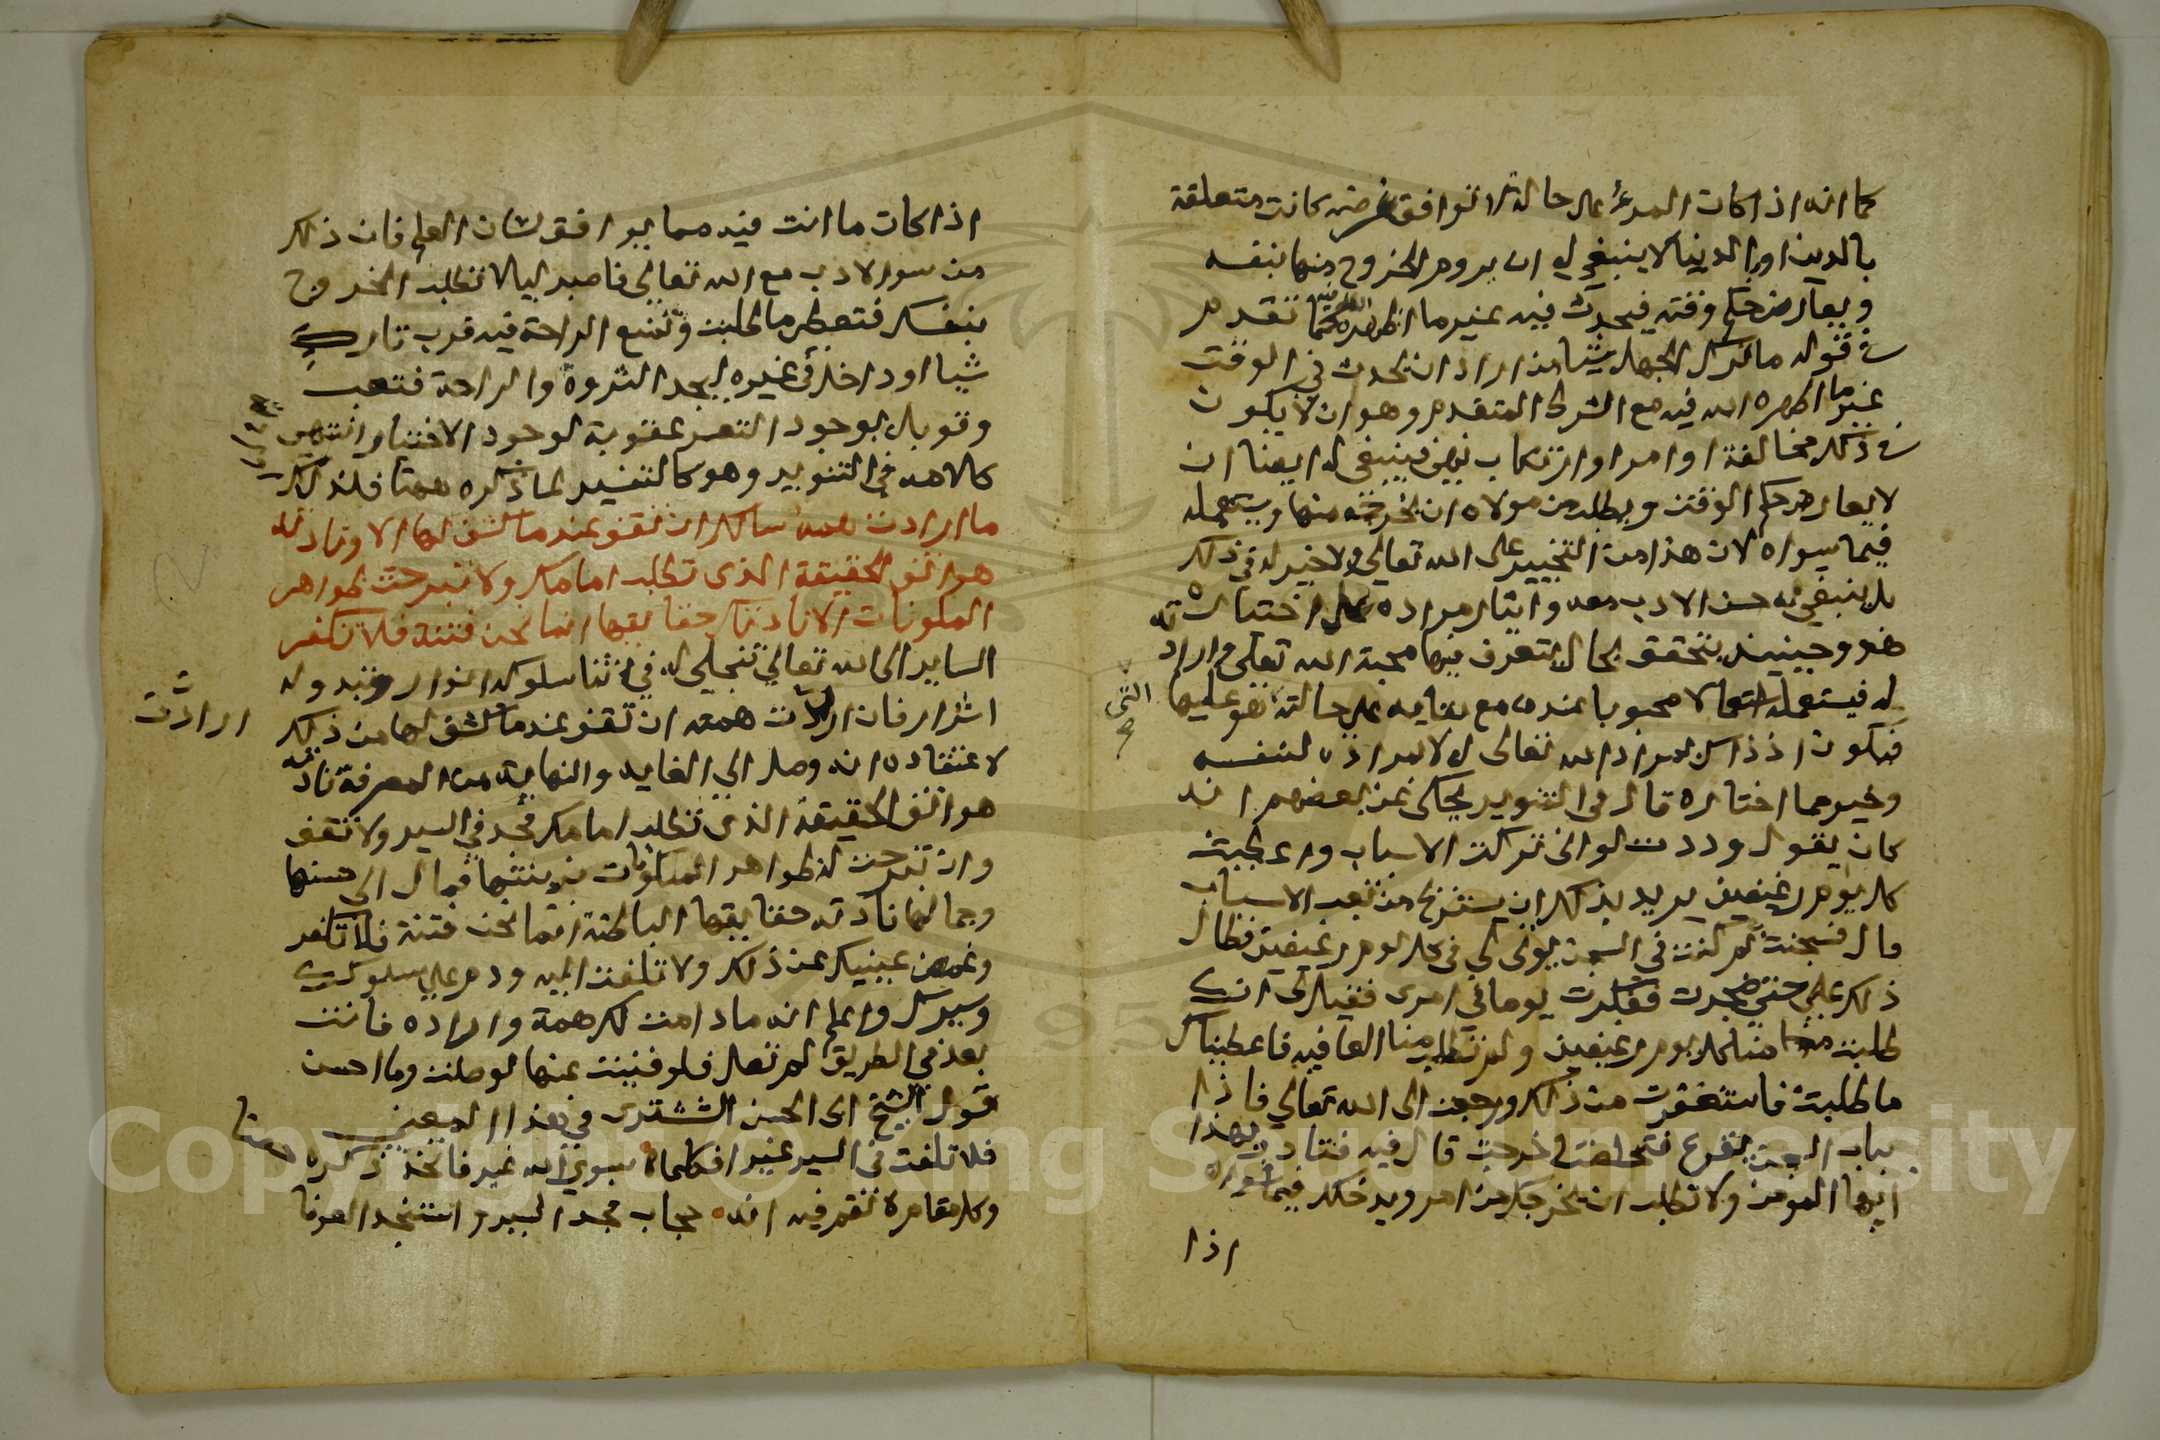 كما انه اذا كان المرء على حالة لا توافق غرضه كانت متعلقة
بالدين او الدنيا لا ينبغي له ان يروم الخروج منها بنفسه
ويعارض حكم وقته فيحدث فيه غير ما اظهره الله فيه كما تقدم
في قوله ما ترك من الجهل شيا من اراد ان يحدث في الوقت
غير ما اظهره الله فيه مع الشرط المتقدم وهو ان لا يكون
في ذلك مخالفة اوامر او ارتكاب نهى فينبغي له ايضا ان
لا يعارض حكم الوقت ويطلب من مولاه ان يخرجه منها ويستعمله
فيما سواه لان هذا من التخيير على الله تعالى ولا خير له في ذلك
بل ينبغي له حسن الادب معه وايثار مراده على اختياره
فهو وحينيذ يتحقق بحال يتعرف فيها محبة الله تعالى واراد
له فيستعمله استعمالا محبوبا عنده مع بقايه على حالته التي هو عليها
فيكون اذ ذاك لمراد الله تعالى له لا لمراده لنفسه
وخير مما اختاره قال في التنوير يحكى عن بعضهم انه
كان يقول وددت لو اني تركت الاسباب واعطيت
كل يوم رغيفين يريد بذلك ان يستريح من تعب الاسباب
قال فسجنت ثم كنت في السجن يوتى لي في كل يوم رغيفين فطال
ذلك علي حتى ضجرت ففكرت يوما في امرى فقيل لى انك
طلبت منا كل يوم رغيفين ولم تطلب منا العافيه فاعطيناك
ما طلبت فاستغفرت من ذلك ورجعت الى الله تعالى فاذا
بباب السجن يقرع فتخلصت وخرجت قال فيه فتادب بهذا
ايها المومن ولا تطلب ان يخرجك من امر ويدخلك فيما سواه
اذا
اذا كان ما انت فيه مما يوافق لسان العلم فان ذلك
من سوء الادب مع الله تعالى فاصبر ليلا تطلب الخروج
بنفسك فتعطى ما طلبت وتمنع الراحة فيه فرب تارك
شيا او داخل في غيره ليجد الثروة والراحة فتعب
وقوبل بوجود التعسر عقوبة لوجود الاختيار انتهى
كلامه في التنوير وهو كالتفسير لما ذكره همنا فلذلك
ما ارادت همة سالك ان تقف عند ما كشف لها الا ونادته
هواتف الحقيقة الذى تطلب امامك ولا تبرجت ظواهر
المكونات الا نادتك حقايقها انما نحن فتنة فلا تكفر
الساير الى الله تعالى تتجلى له في اثنا سلوكه انوار وتبدو له
اسرار فان ارادت همته ان تقف عند ما كشف لها من ذلك
ارادت
لاعتقاده انه وصل الى الغايه والنهاية من المعرفة نادته
هواتف الحقيقة الذي تطلب امامك فجد في السير ولا تقف
وان تبرجت له ظواهر المكونات بزينتها فمال الى حسنها
وجمالها نادته حقايقها الباطنة انما نحن فتنة فلا تكفر
وغمض عينيك عن ذلك ولا تلتفت اليه ودم على سلوكك
وسيرك واعلم انه ما دامت لك همة واراده فانت
بعد في الطريق لم تصل فلو فنيت عنها لوصلت وما احسن
قول الشيخ ابى الحسن الششترى في هذا المعنى
فلا تلتفت في السير غيرا فكلما سوى الله غير فاتخذ ذكره حصنا
وكل مقام لا تقم فيه انه حجاب فجد السير واستنجد العونا